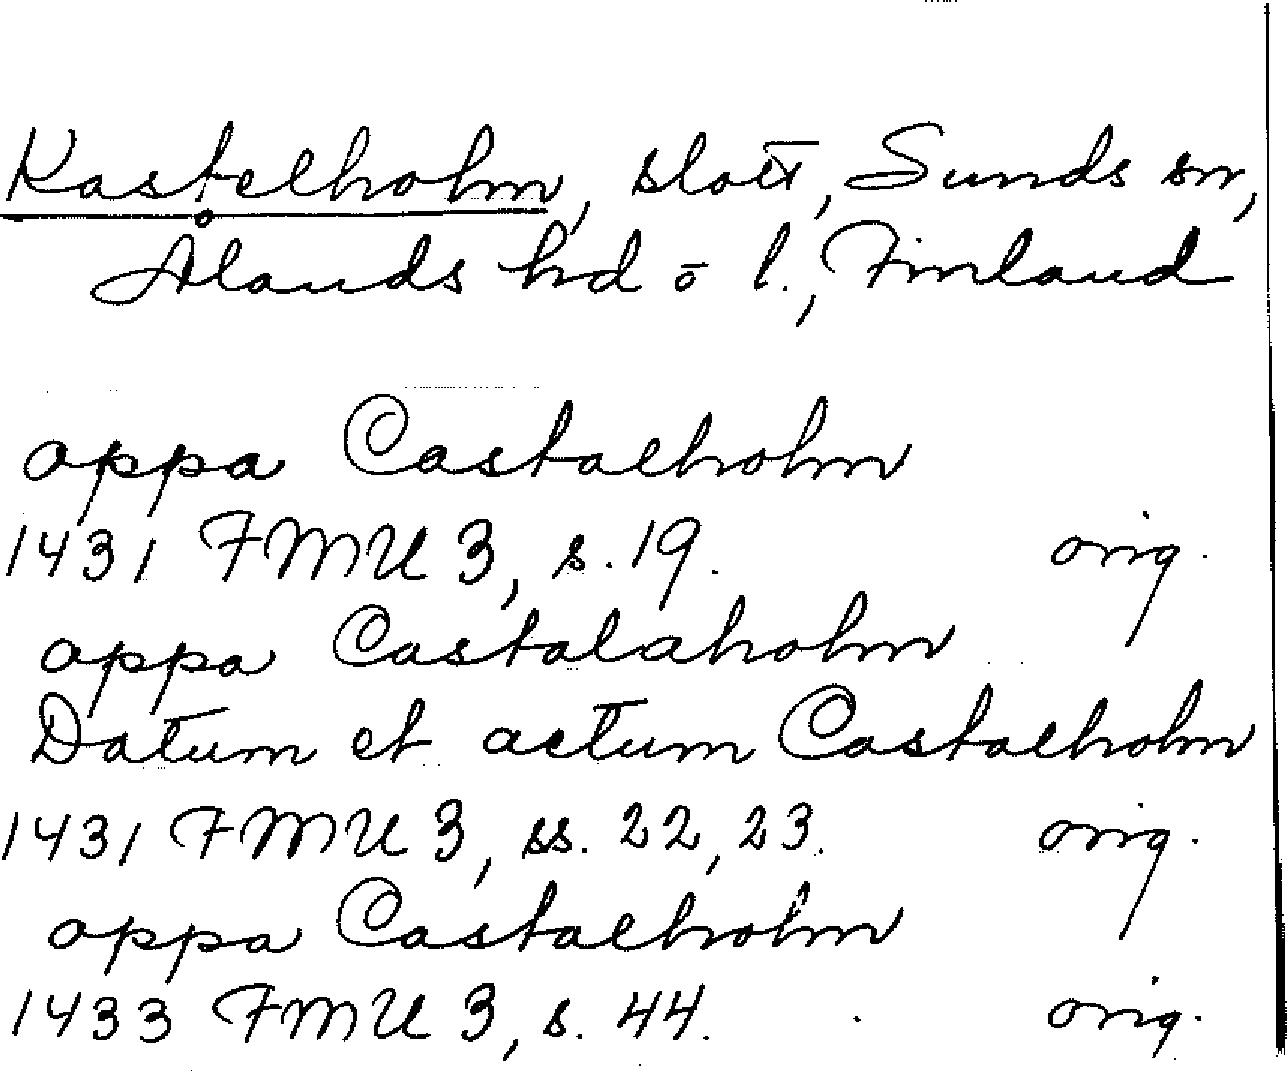 Kastelholm, slott, Sunds sn,
Ålands hd o l., Finland
oppa Castaelholm
1431 FMU 3, s. 19. orig.
oppa Castalaholm
Datum et actum Castaelholm
1431 FMU 3, ss. 22, 23. orig.
oppa Castaelholm
1433 FMU 3, s. 44. orig.